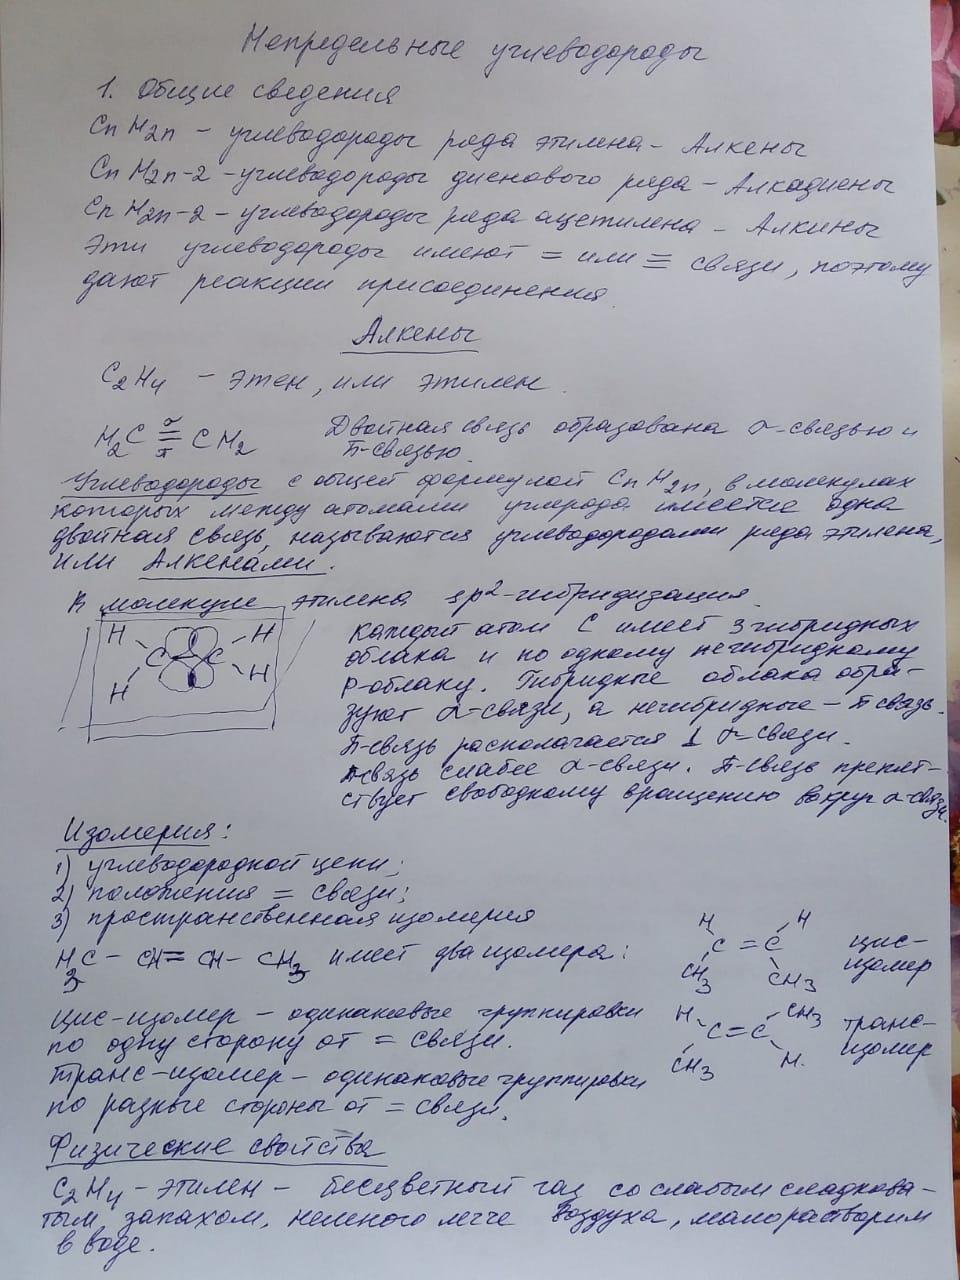 Непредельные углеводороды
1. Общие сведения
CnH2n - углеводороды ряда этилена - Алкены
CnH2n-2 - углеводороды диенового ряда - Алкадиены
CnH2n-2 - углеводороды ряда ацетилена - Алкины
Эти углеводороды имеют = или ≡ связи, поэтому
дают реакции присоединения.
Алкены
C2H4 - этен, или этилен.
σ
H2C = CH2
π
Двойная связь образована σ-связью и
π-связью.
Углеводороды с общей формулой CnH2n, в молекулах
которых между атомами углерода имеется одна
двойная связь, называются углеводородами ряда этилена,
или Алкенами.
В молекуле этилена sp²-гибридизация.
H H
C C
H H
Каждый атом С имеет 3 гибридных
облака и по одному негибридному
р-облаку. Гибридные облака обра-
зуют σ-связи, а негибридные - π связь.
π-связь располагается ⊥ σ-связи.
π-связь слабее σ-связи. π-связь препят-
ствует свободному вращению вокруг σ-связи.
Изомерия:
1) углеводородной цепи;
2) положения = связи;
3) пространственная изомерия
H3C - CH = CH - CH3 имеет два изомера:
H H
C = C
CH3 CH3
цис-
изомер
Цис-изомер - одинаковые группировки
по одну сторону от = связи.
H CH3
C = C
CH3 H.
транс-
изомер
Транс-изомер - одинаковые группировки
по разные стороны от = связи.
Физические свойства
C2H4 - этилен - бесцветный газ со слабым сладкова-
тым запахом, немного легче воздуха, малорастворим
в воде.